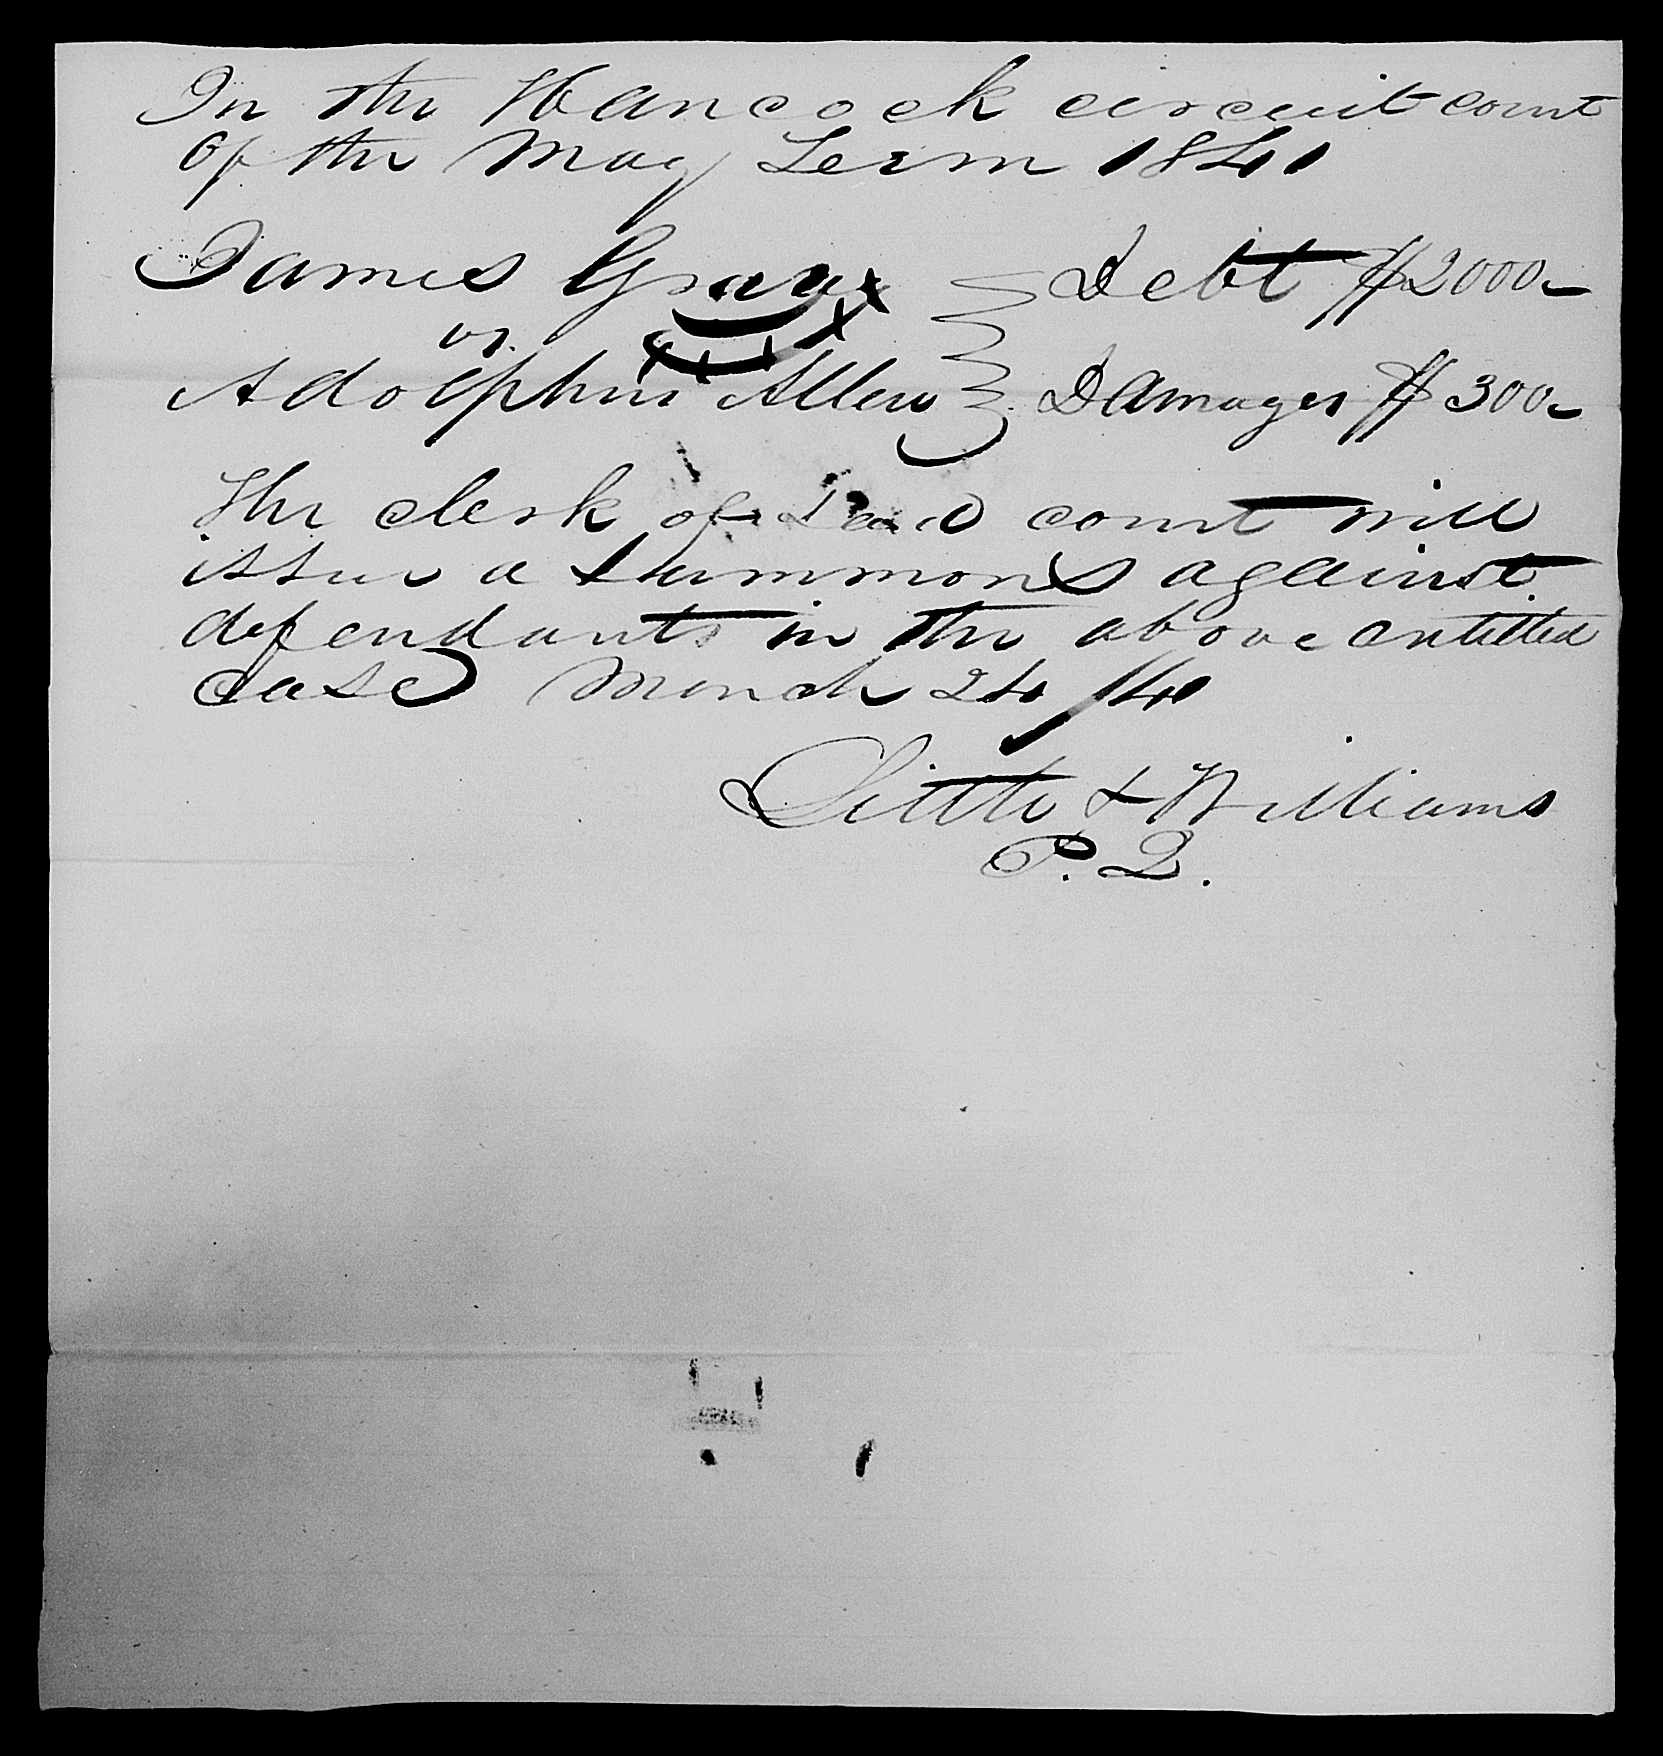 In the Hancock circuit court
Of the May Term 1841
James Gray Debt $2000
vs.
Adolphus Allen Damages $300
The clerk of Said court will
issue a summons against
defendants in the above entitled
case March 24/41
Little & Williams
P. Q.